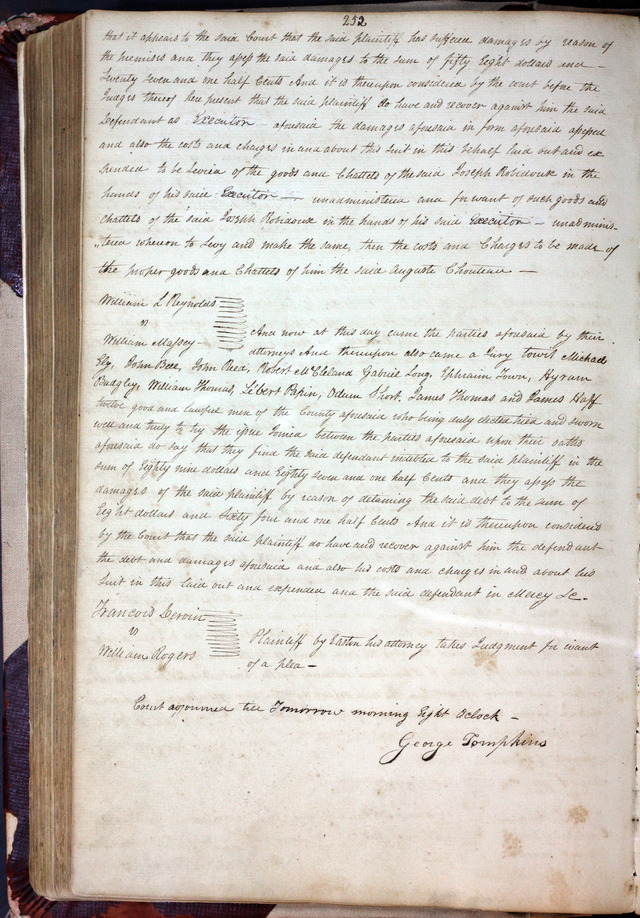 252
that it appears to the said Court that the said plaintiff has suffered damages by reason of
the premises and they assess the said damages to the sum of fifty Eight dollars and
Seventy Seven and one half Cents And it is thereupon considered by the court before the
Judges thereof here present that the said plaintiff do have and recover against him the said
Defendant as Executor aforesaid the damages aforesaid in form aforesaid assessed
and also the costs and charges in and about this Suit in this behalf laid out and ex
pended to be Levied of the goods and Chattels of the said Joseph Robidoux in the
hands of his said Executor — unadministered and for want of such goods and
chattels of the said Joseph Robidoux in the hands of his said Executor — unadminis-
"tered whereon to Levy and make the same, then the costs and Charges to be made of
the proper goods and Chattels of him the said Auguste Chouteau —
William L Reynolds
vs
William Massey
And now at this day came the parties aforesaid by their
attorneys And thereupon also came a Jury towit Michael
Ely, John Bee, John Reed, Robert McCleland Gabriel Long, Ephraim Town, Hyram
Badgley, William Thomas, Lébert Papin, Odum Short, James Thomas and James Haff
twelve good and lawful men of the County aforesaid who being duly elected tried and sworn
well and truly to try the issue Joined between the parties aforesaid upon their oaths
aforesaid do say that they find the said defendant indebted to the said plaintiff in the
sum of Eighty nine dollars and Eighty seven and one half Cents and they assess the
damages of the said plaintiff by reason of detaining the said debt to the sum of
Eight dollars and Sixty four and one half Cents And it is thereupon considered
by the Court that the said plaintiff do have and recover against him the defendant
the debt and damages aforesaid and also his costs and charges in and about his
Suit in this laid out and expended and the said defendant in Mercy &c.
Francois
vs
William Rogers
Plaintiff by Easton his attorney takes Judgment for want
of a plea —
Court adjourned till Tomorrow morning Eight Oclock —
George Tompkins